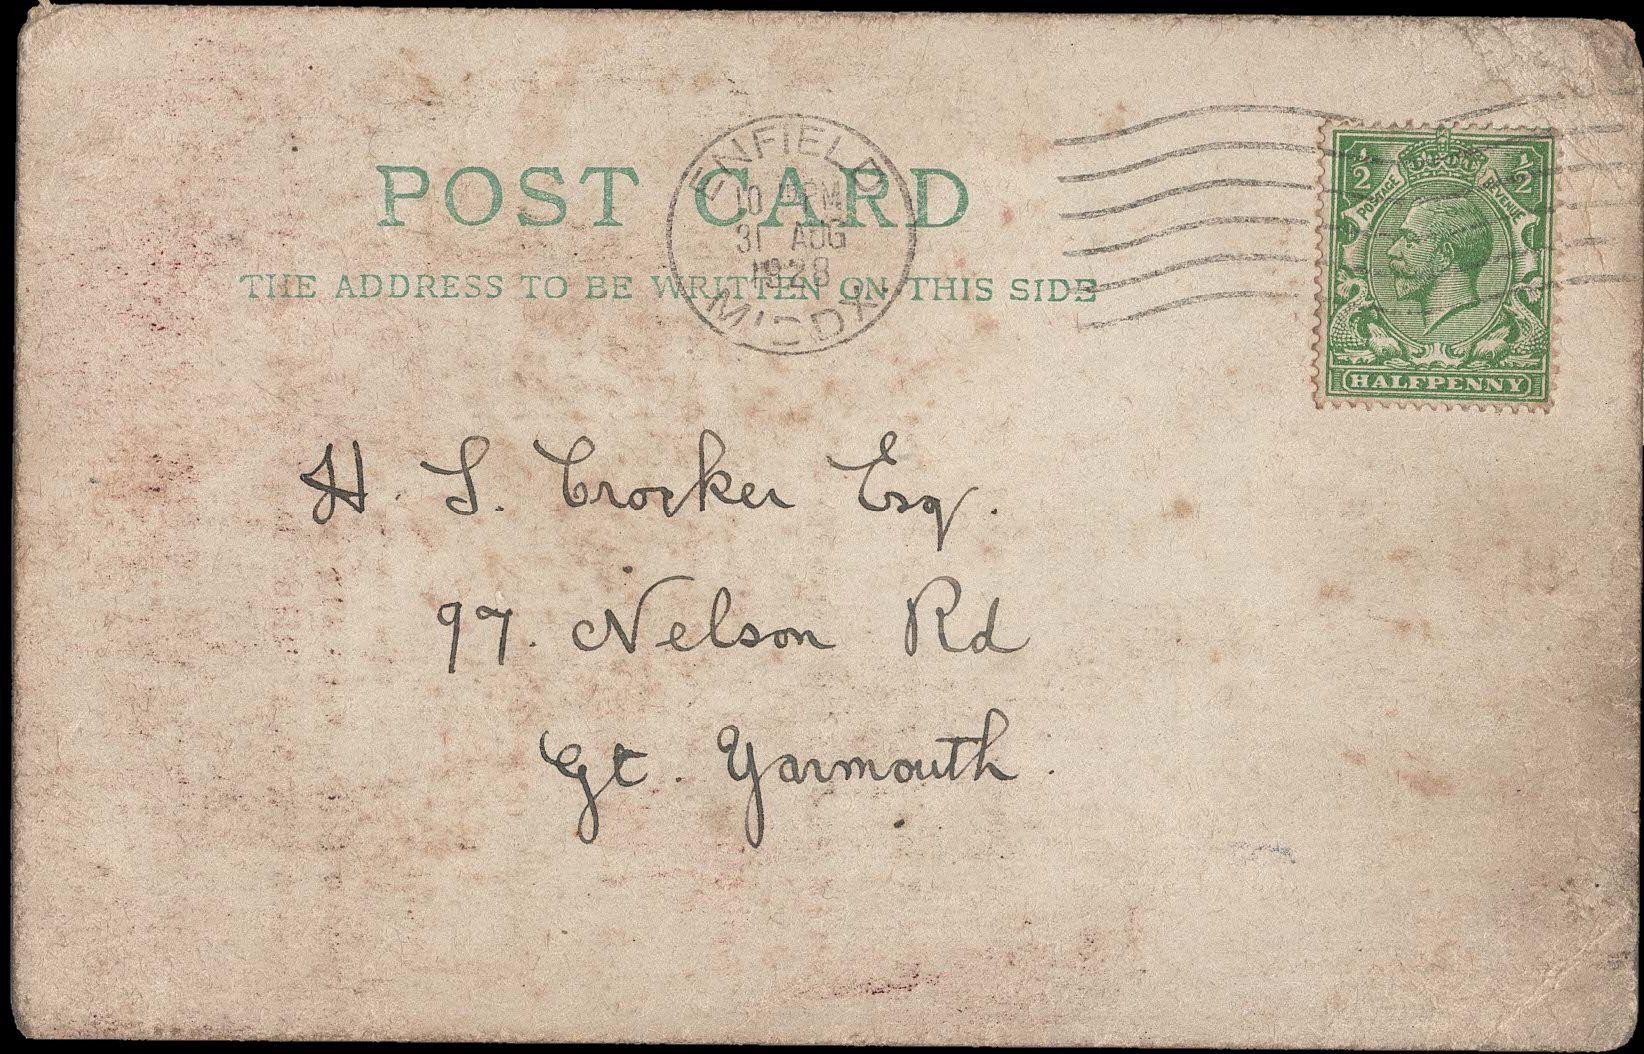 POST CARD
THE ADDRESS TO BE WRITTEN ON THIS SIDE
ENFIELD
10 PM
31 AUG
1928
MIDDX
1/2 1/2
POSTAGE REVENUE
HALFPENNY
H. S. Crocker Esq.
97. Nelson Rd
Gt. Yarmouth.